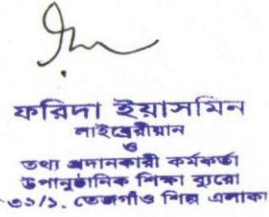 ফরিদা ইয়াসমিন
লাইব্রেরীয়ান
ও
তথ্য প্রদানকারী কর্মকর্তা
উপানুষ্ঠানিক শিক্ষা ব্যুরো
৩১/১, তেজগাঁও শিল্প এলাকা